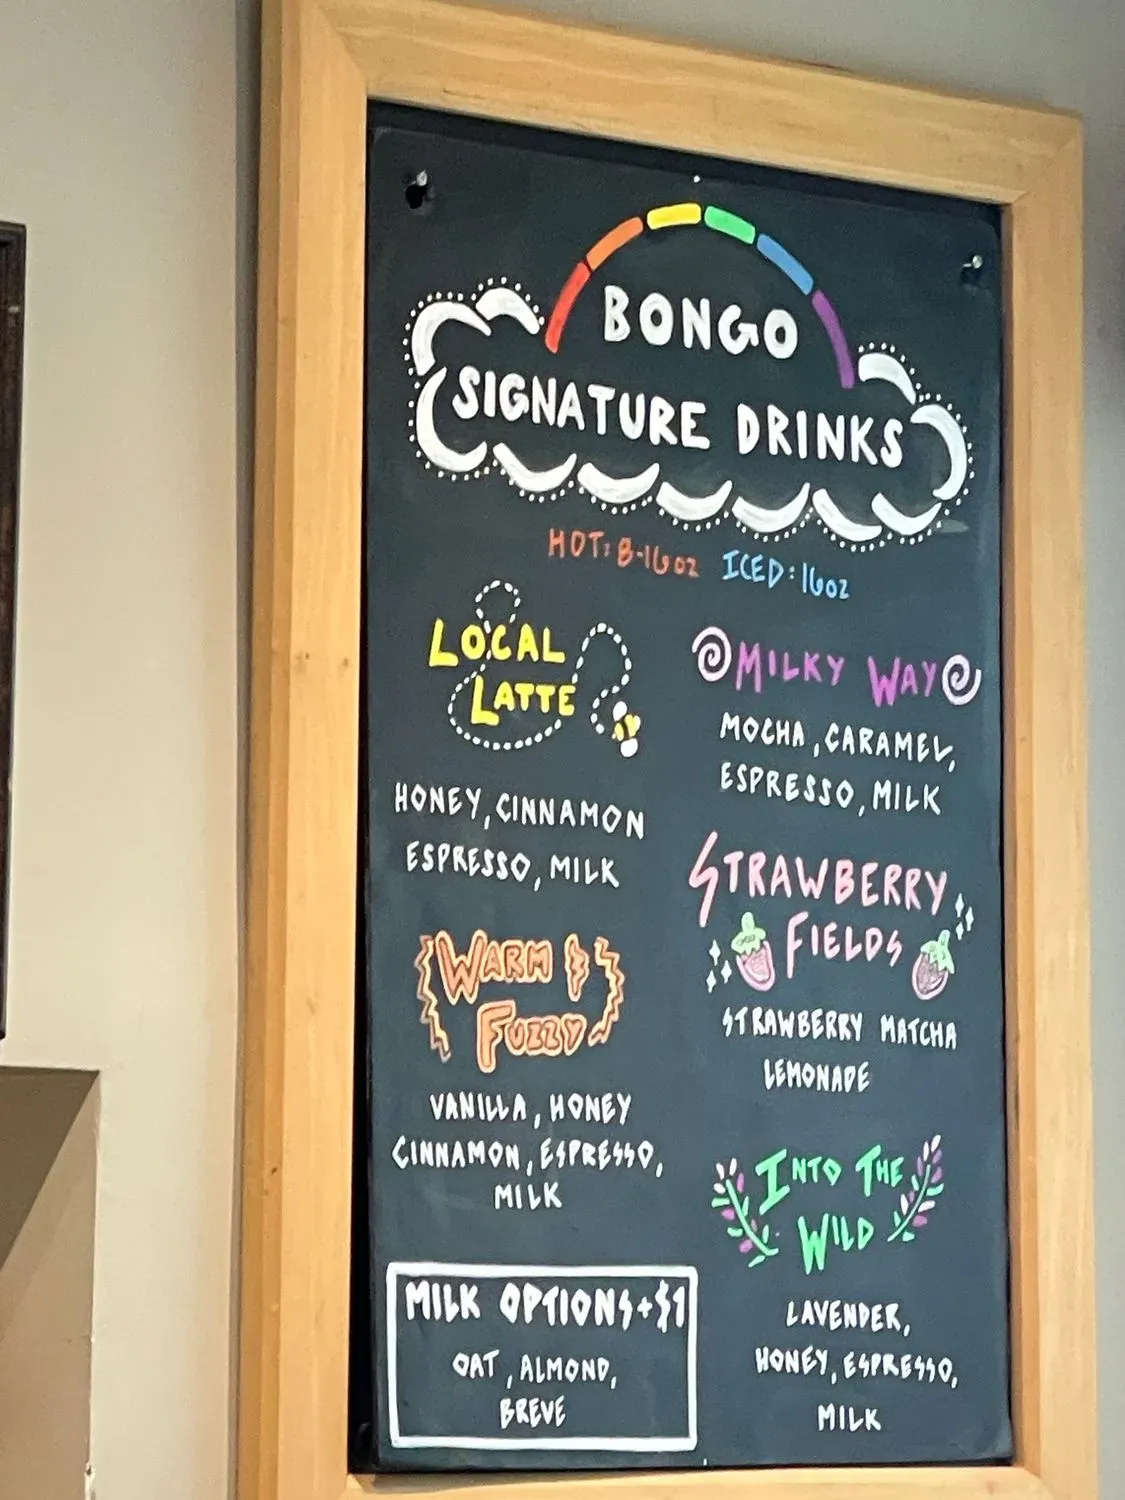 BONGO
SIGNATURE DRINKS
HOT: 8-16oz ICED: 16oz
LOCAL
LATTE
HONEY, CINNAMON
ESPRESSO, MILK
WARM &
FUZZY
VANILLA, HONEY
CINNAMON, ESPRESSO,
MILK
MILK OPTIONS +$1
OAT, ALMOND,
BREVE
MILKY WAY
MOCHA, CARAMEL,
ESPRESSO, MILK
STRAWBERRY
FIELDS
STRAWBERRY MATCHA
LEMONADE
INTO THE
WILD
LAVENDER,
HONEY, ESPRESSO,
MILK